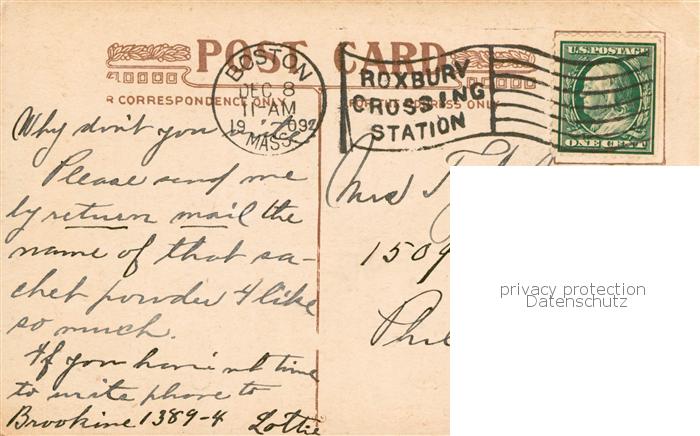 POST CARD
R CORRESPONDENCE ONLY
ADDRESS ONLY
BOSTON
DEC 8
11 AM
1909
MASS.
2
ROXBURY
CROSSING
STATION
U.S. POSTAGE
ONE CENT
Why don't you write
Please send me
by return mail the
name of that sa-
chet powder I like
so much.
If you haven't time
to write phone to
Brookine 1389-4 Lottie
Mrs
1509
Phil
privacy protection
Datenschutz